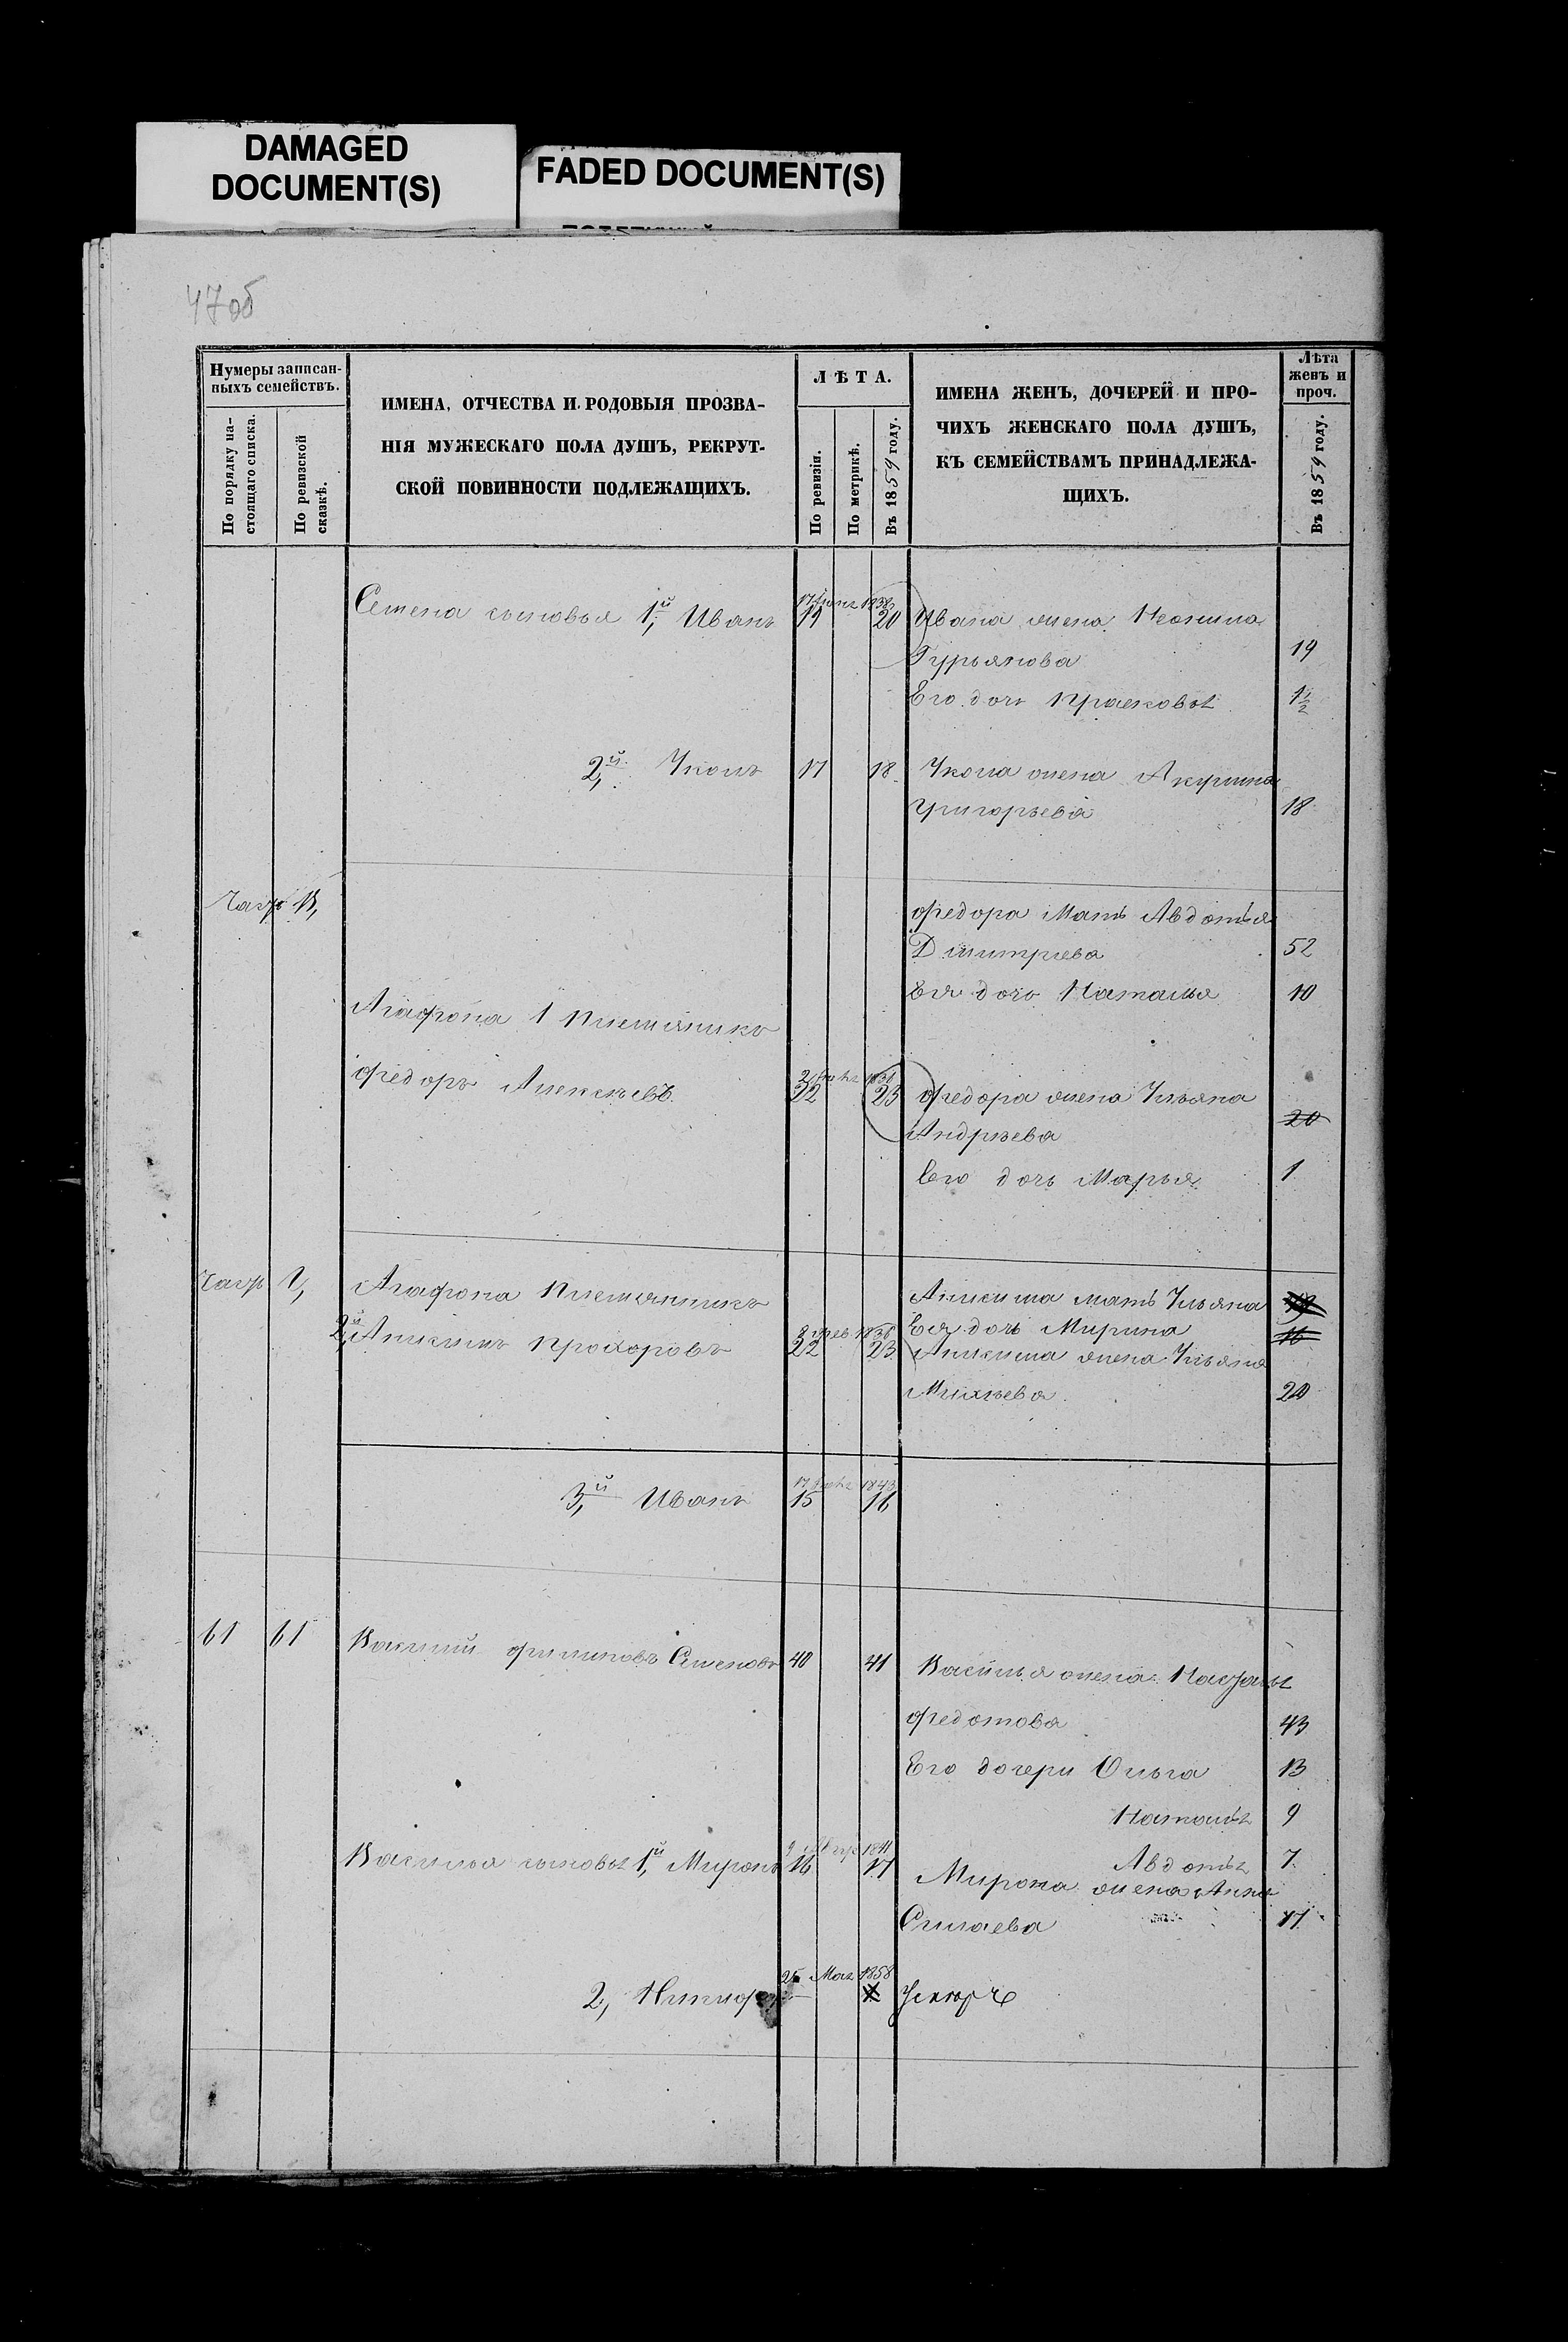 DAMAGED
DOCUMENT(S)
FADED DOCUMENT(S)
47 об
Нумеры записан-
ныхъ семействъ.
По порядку на-
стоящаго списка.
По ревизской
сказкѣ.
ИМЕНА, ОТЧЕСТВА И РОДОВЫЯ ПРОЗВА-
НІЯ МУЖЕСКАГО ПОЛА ДУШЪ, РЕКРУТ-
СКОЙ ПОВИННОСТИ ПОДЛЕЖАЩИХЪ.
ЛѢТА.
По ревизіи.
По метрикѣ.
Въ 1859 году.
ИМЕНА ЖЕНЪ, ДОЧЕРЕЙ И ПРО-
ЧИХЪ ЖЕНСКАГО ПОЛА ДУШЪ,
КЪ СЕМЕЙСТВАМЪ ПРИНАДЛЕЖА-
ЩИХЪ.
Лѣта
женъ и
проч.
Въ 1859 году.
Семена сыновья 1й, Иванъ 19 20 Ивана жена
Гурьянова 19
Его дочь Прасковья 1½
2й, 17 18 жена Акулина
Григорьева 18
В,
Федора Мать Авдотья
Дмитриева 52
Ея дочь Наталья 10
Агафона 1 племяникъ
Федоръ Алексѣевъ 22 23 Федора жена Ульяна
Андрѣева 20
Его дочь Марья 1
Г,
Агафона племянникъ Анисима мать Ульяна
Ея дочь Марина 16
2й, Анисимъ Прохоровъ 22 23 Анисима жена Ульяна
Михѣева 20
3й, Иванъ 15 16
61 61 Василий Филиповъ Семеновъ 40 41 Василья жена
Федотова 43
Его дочери Ольга 13
Наталья 9
Авдотья 7
Василья сыновья 1й, Миронъ 16 17 Мирона жена Анна
17
25 Мая 1858
2,